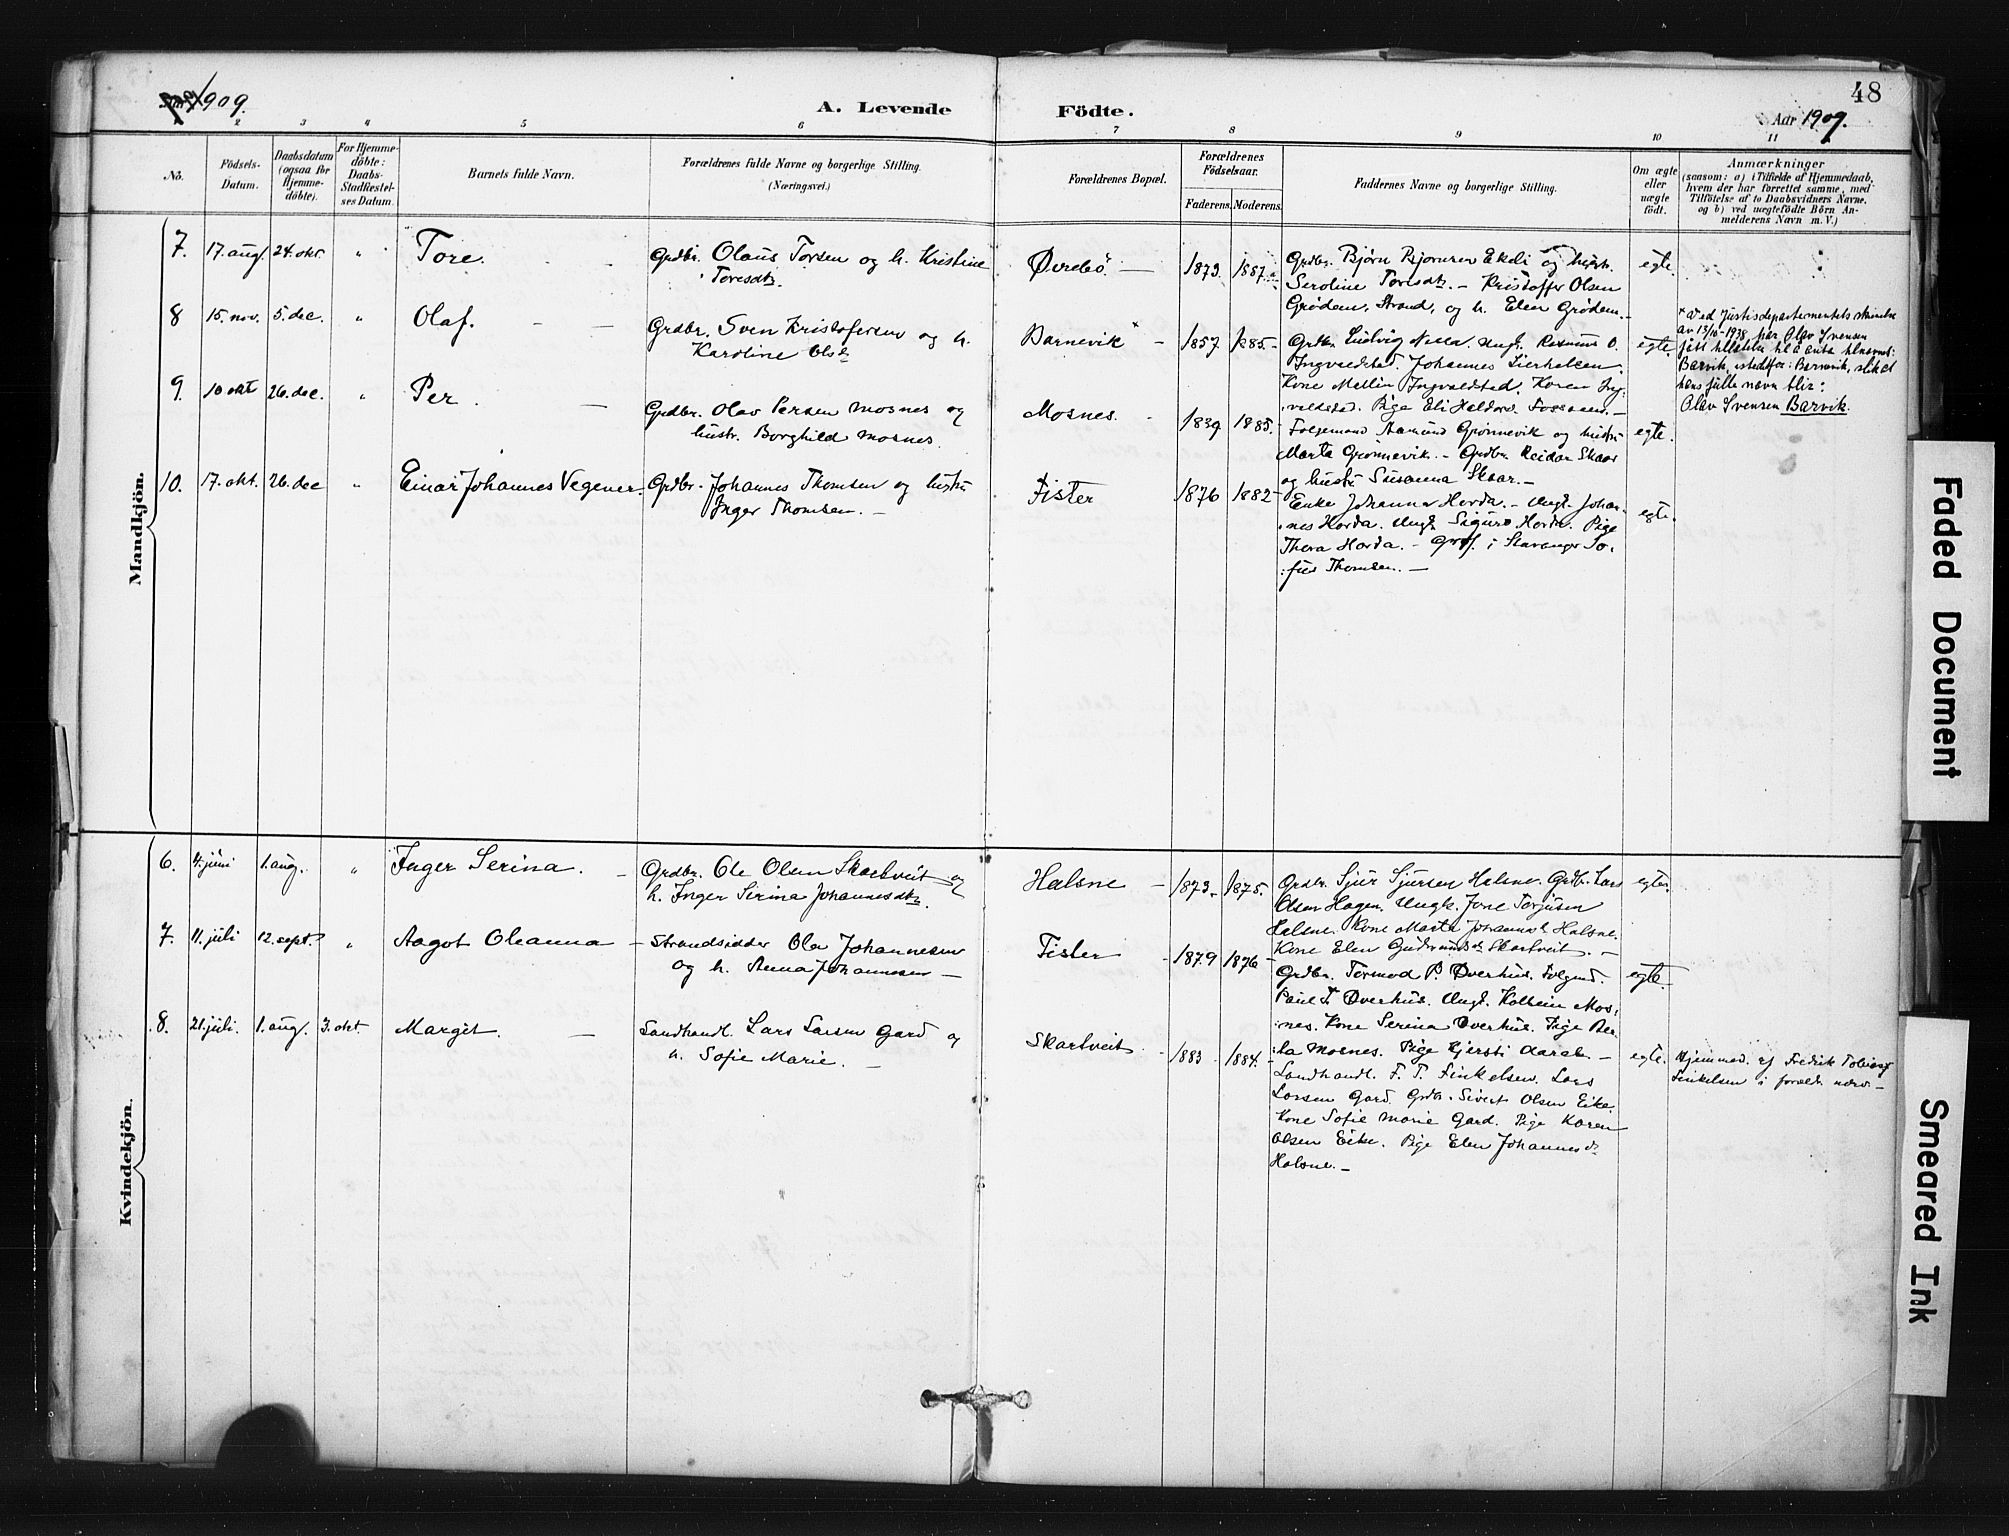 48
1909.
A. Levende Födte.
Aar 1909.
2 3 4 5 6 7 8 9 10 11
No.
Födsels-
Datum.
Daabsdatum
(ogsaa for
Hjemme-
döbte).
For Hjemme-
döbte:
Daabs-
Stadfæstel-
ses Datum.
Barnets fulde Navn.
Forældrenes fulde Navne og borgerlige Stilling.
(Næringsvei.)
Forældrenes Bopæl.
Forældrenes
Födselsaar.
Faderens. Moderens.
Faddernes Navne og borgerlige Stilling.
Om ægte
eller
uægte
födt.
Anmærkninger
(saasom: a) i Tilfælde af Hjemmedaab,
hvem der har forrettet samme, med
Tilföielse af to Daabsvidners Navne.
og b) ved uægtefödte Börn An-
melderens Navn m. V.)
Mandkjön.
7. 17. aug. 24. okt. " Tore.
Grdbr. Olaus Torsen og h. Kristine
Toresdtr.
Øvrebø. — 1873. 1887.
Grdbr. Bjørn Bjørnsen Ekeli og hustr.
Seroline Toresdtr. — Kristoffer Olsen
Grødem, Strand, og h. Elen Grødem. —
egte.
8 15. nov. 5. dec. " Olaf. — —
Grdbr. Sven Kristofersen og h.
Karoline Olsdtr
Barnevik × — 1857 1885 —
Grdbr. Ludvig Nessa. Ungk. Rasmus O.
Ingvaldstad. Johannes
Kone Mallin Ingvaldstad. Karen Ing-
valdstad. Pige Eli Haldors. Fossaaen. —
egte.
× Ved Justisdepartementets skrivelse
av 13/10-1938 har Olav Svensen
fått tillatelse til å anta navnet:
Barvik, istedfor: Barnevik, slik at
hans fulle navn blir:
Olav Svensen Barvik.
9. 10 okt 26. dec. " Per. —
Grdbr. Olav Persen Mosnes og
hustr. Borghild Mosnes.
Mosnes. — 1839 1885.
Folgemand Aamund Grønnevik og hustru
Marta Grønnevik. — Grdbr. Reidar Skaar
og hustru Susanna Skaar. —
egte.
10. 17. okt. 26. dec " Einar Johannes Vegener.
Grdbr. Johannes Thomsen og hustru
Inger Thomsen. —
Fister 1876 1882 —
Enke Johanna Horda. — Ungk. Johan-
nes Horda. Ungk. Sigurd Horda. Pige
Thora Horda. — i Stavanger So-
fus Thomsen. —
egte.
Kvindekjön.
6. 4. juni 1. aug. " Inger Serina. —
Grdbr. Ole Olsen Skartveit og
h. Inger Serina Johannesdtr.
Halsne — 1873 — 1875.
Grdbr. Sjur Sjursen Halsne. Grdbr. Lars
Olsen Hagen. Ungk. Jone Torjusen
Halsne. Kone Marta Johannesd. Halsne.
Kone Elen Gudmundsd. Skartveit. —
egte.
7. 11. juli 12. sept. " Aagot Oleanna —
Strandsidder Ole Johannesen
og h. Anna Johannesen —
Fister — 1879 1876 —
Grdbr. Tormod P. Øverhus. Folgmd.
Paul T. Øverhus. Ungk. Kolbein Mos-
nes. Kone Serina Øverhus. Pige Ber-
ta Mosnes. Pige Kjersti —
egte.
8. 21. juli. 1. aug. 3. okt. Margit. —
Landhandl. Lars Larsen Gard og
h. Sofie Marie. —
Skartveit — 1883 — 1884. —
Landhandl. F. T. Finkelsen. Lars
Larsen Gard. Grdbr. Sivert Olsen Eike.
Kone Sofie Marie Gard. Pige Karen
Olsen Eike. Pige Elen Johannesd.
Halsne. —
egte.
Hjemmed. af Fredrik Tobias
Finkelsen i foræld. nærv. —
Faded Document
Smeared Ink